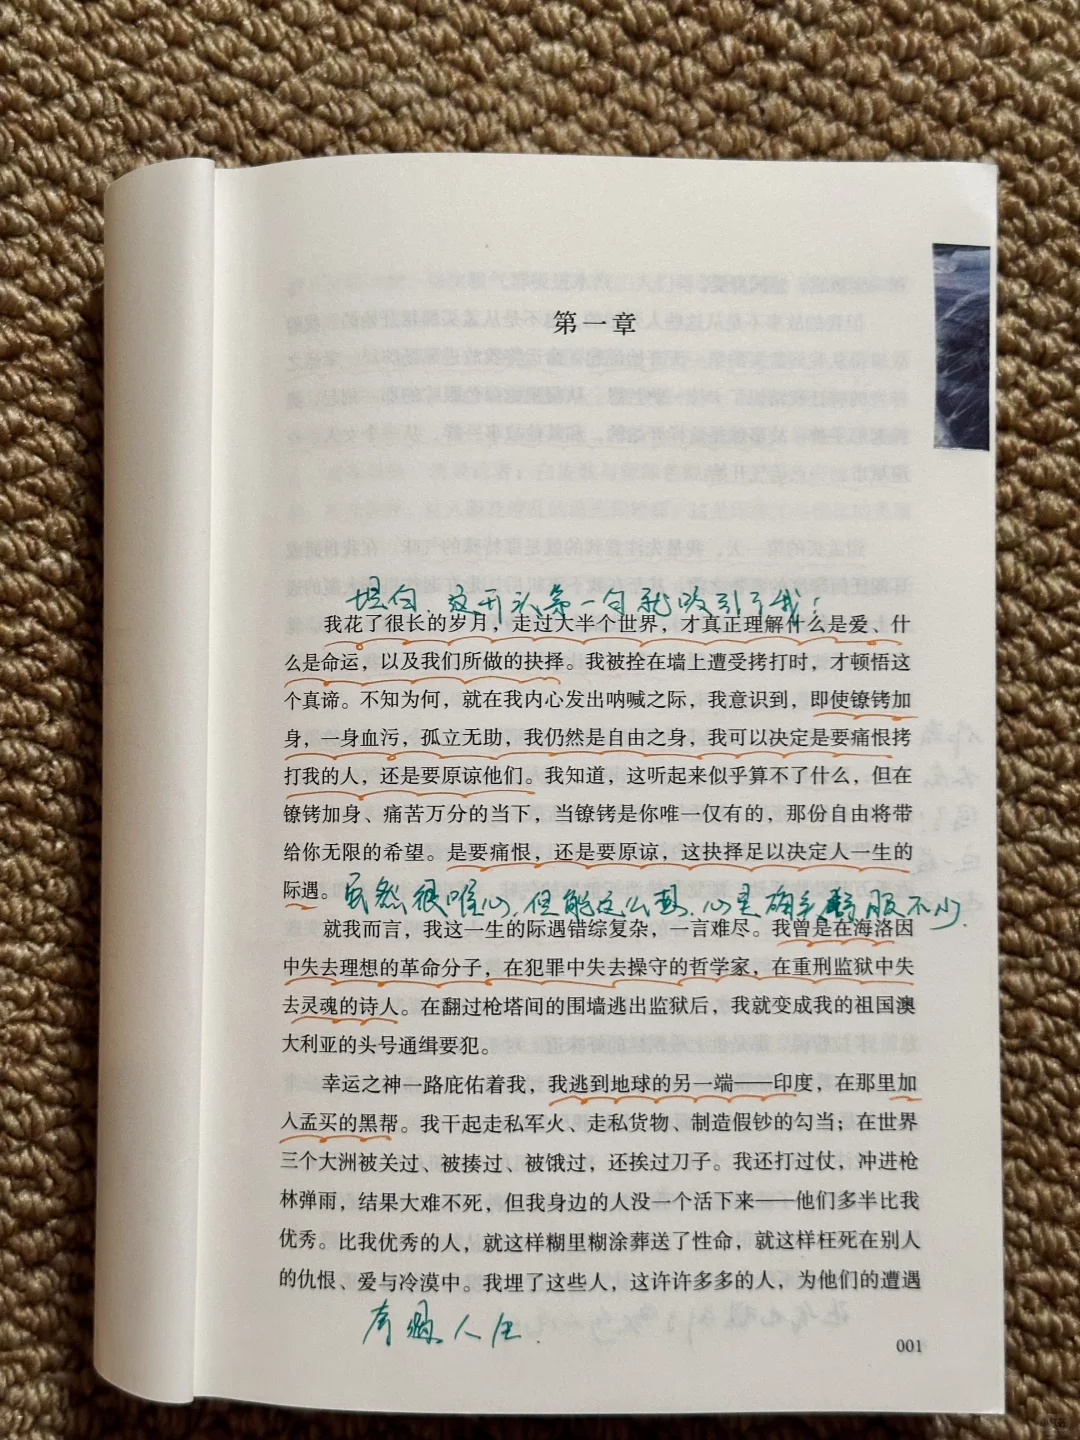 第一章
坦白.这开头第一句就吸引了我!
我花了很长的岁月，走过大半个世界，才真正理解什么是爱、什
么是命运，以及我们所做的抉择。我被拴在墙上遭受拷打时，才顿悟这
个真谛。不知为何，就在我内心发出呐喊之际，我意识到，即使镣铐加
身，一身血污，孤立无助，我仍然是自由之身，我可以决定是要痛恨拷
打我的人，还是要原谅他们。我知道，这听起来似乎算不了什么，但在
镣铐加身、痛苦万分的当下，当镣铐是你唯一仅有的，那份自由将带
给你无限的希望。是要痛恨，还是要原谅，这抉择足以决定人一生的
际遇。
虽然很唯心,但能这么想,心里确实舒服不少.
就我而言，我这一生的际遇错综复杂，一言难尽。我曾是在海洛因
中失去理想的革命分子，在犯罪中失去操守的哲学家，在重刑监狱中失
去灵魂的诗人。在翻过枪塔间的围墙逃出监狱后，我就变成我的祖国澳
大利亚的头号通缉要犯。
幸运之神一路庇佑着我，我逃到地球的另一端——印度，在那里加
入孟买的黑帮。我干起走私军火、走私货物、制造假钞的勾当；在世界
三个大洲被关过、被揍过、被饿过，还挨过刀子。我还打过仗，冲进枪
林弹雨，结果大难不死，但我身边的人没一个活下来——他们多半比我
优秀。比我优秀的人，就这样糊里糊涂葬送了性命，就这样枉死在别人
的仇恨、爱与冷漠中。我埋了这些人，这许许多多的人，为他们的遭遇
人生.
001